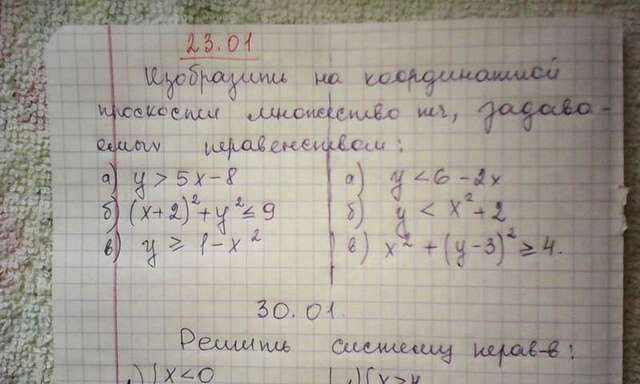 23.01
Изобразить на координатной
плоскости множество тч, задава-
емых неравенством:
а) y > 5x - 8 а) y < 6 - 2x
б) (x+2)² + y² ≤ 9 б) y < x² + 2
в) y ≥ 1 - x² в) x² + (y-3)² ≥ 4.
30.01.
Решить систему нерав-в:
x < 0